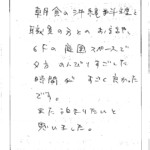 朝食の沖縄料理と
職員の方との おはなし、
6Fの庭園スペースで
夕方 のんびりすごした
時間が すごく良かった
です。
また 泊まりたいと
思いました。